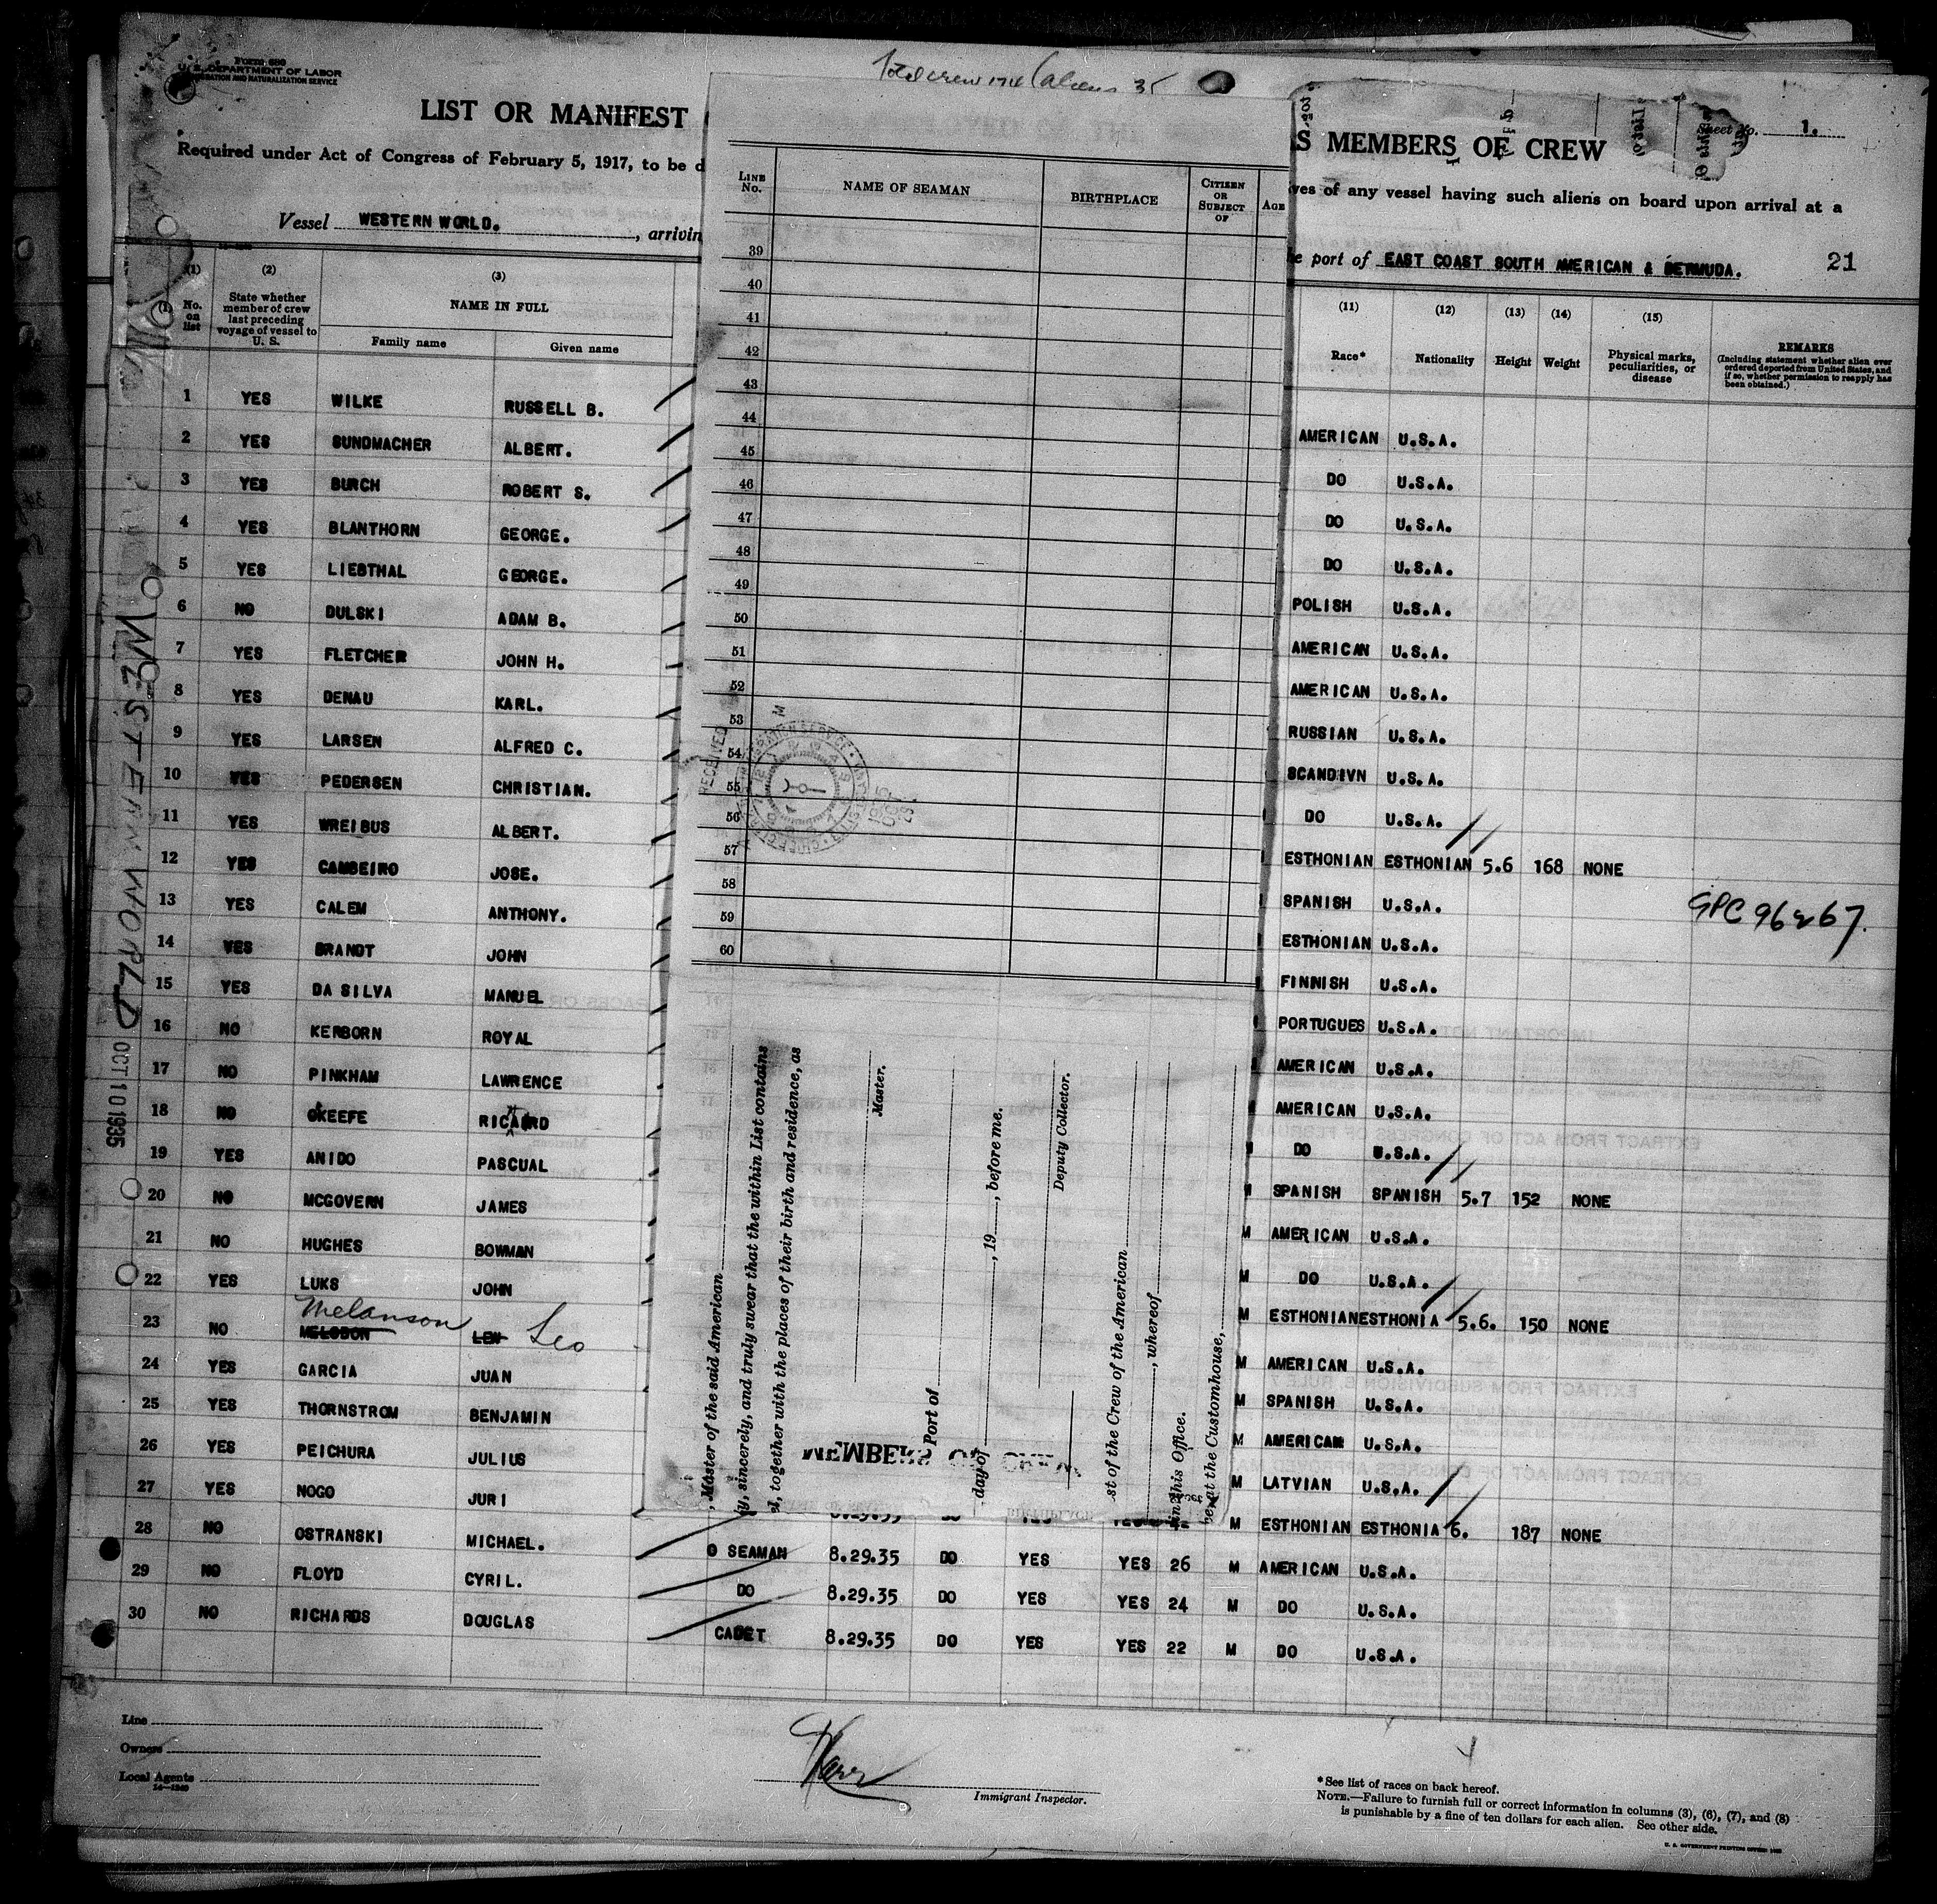 Form 680
U. S. DEPARTMENT OF LABOR
IMMIGRATION AND NATURALIZATION SERVICE
Total crew incl aliens 35
LIST OR MANIFEST
S MEMBERS OF CREW
Sheet No. 1.
Required under Act of Congress of February 5, 1917, to be d
ves of any vessel having such aliens on board upon arrival at a
Vessel WESTERN WORLD. , arrivin
e port of EAST COAST SOUTH AMERICAN & BERMUDA. 21
(1) (2) (3)
No. on list
State whether member of crew last preceding voyage of vessel to U. S.
NAME IN FULL
Family name Given name
(11) (12) (13) (14) (15)
Race* Nationality Height Weight Physical marks, peculiarities, or disease
REMARKS
(Including statement whether alien ever ordered deported from United States, and if so, whether permission to reapply has been obtained.)
1 YES WILKE RUSSELL B. AMERICAN U.S.A.
2 YES SUNDMACHER ALBERT. DO U.S.A.
3 YES BURCH ROBERT S. DO U.S.A.
4 YES BLANTHORN GEORGE. DO U.S.A.
5 YES LIEBTHAL GEORGE. POLISH U.S.A.
6 NO DULSKI ADAM B. AMERICAN U.S.A.
7 YES FLETCHER JOHN H. AMERICAN U.S.A.
8 YES DENAU KARL. RUSSIAN U.S.A.
9 YES LARSEN ALFRED C. SCANDIVN U.S.A.
10 YES PEDERSEN CHRISTIAN. DO U.S.A.
11 YES WREIBUS ALBERT. ESTHONIAN ESTHONIAN 5.6 168 NONE
12 YES CAMBEIRO JOSE. SPANISH U.S.A. GPC 96267.
13 YES CALEM ANTHONY. ESTHONIAN U.S.A.
14 YES BRANDT JOHN FINNISH U.S.A.
15 YES DA SILVA MANUEL PORTUGUES U.S.A.
16 NO KERBORN ROYAL AMERICAN U.S.A.
17 NO PINKHAM LAWRENCE AMERICAN U.S.A.
18 NO OKEEFE RICARD DO U.S.A.
19 YES ANIDO PASCUAL M SPANISH SPANISH 5.7 152 NONE
20 NO MCGOVERN JAMES M AMERICAN U.S.A.
21 NO HUGHES BOWMAN M DO U.S.A.
22 YES LUKS JOHN M ESTHONIAN ESTHONIA 5.6. 150 NONE
Melanson Leo
23 NO MELODON LEW M AMERICAN U.S.A.
24 YES GARCIA JUAN M SPANISH U.S.A.
25 YES THORNSTROM BENJAMIN M AMERICAN U.S.A.
26 YES PEICHURA JULIUS M LATVIAN U.S.A.
27 YES NOGO JURI M ESTHONIAN ESTHONIA 6. 187 NONE
28 NO OSTRANSKI MICHAEL. O SEAMAN 8.29.35 DO YES YES 26 M AMERICAN U.S.A.
29 NO FLOYD CYRIL. DO 8.29.35 DO YES YES 24 M DO U.S.A.
30 NO RICHARDS DOUGLAS CADET 8.29.35 DO YES YES 22 M DO U.S.A.
LINE No. NAME OF SEAMAN BIRTHPLACE CITIZEN OR SUBJECT OF AGE
39
40
41
42
43
44
45
46
47
48
49
50
51
52
53
54
55
56
57
58
59
60
RECEIVED
, Master of the said American
y, sincerely, and truly swear that the within List contains
el, together with the places of their birth and residence, as
Master.
Port of
day of , 19 , before me.
Deputy Collector.
st of the Crew of the American
, whereof
in this Office.
at the Customhouse,
MEMBERS OF CREW
WESTERN WORLD
OCT 10 1935
Line
Owners
Local Agents
14—1240
Immigrant Inspector.
*See list of races on back hereof.
NOTE.—Failure to furnish full or correct information in columns (3), (6), (7), and (8)
is punishable by a fine of ten dollars for each alien. See other side.